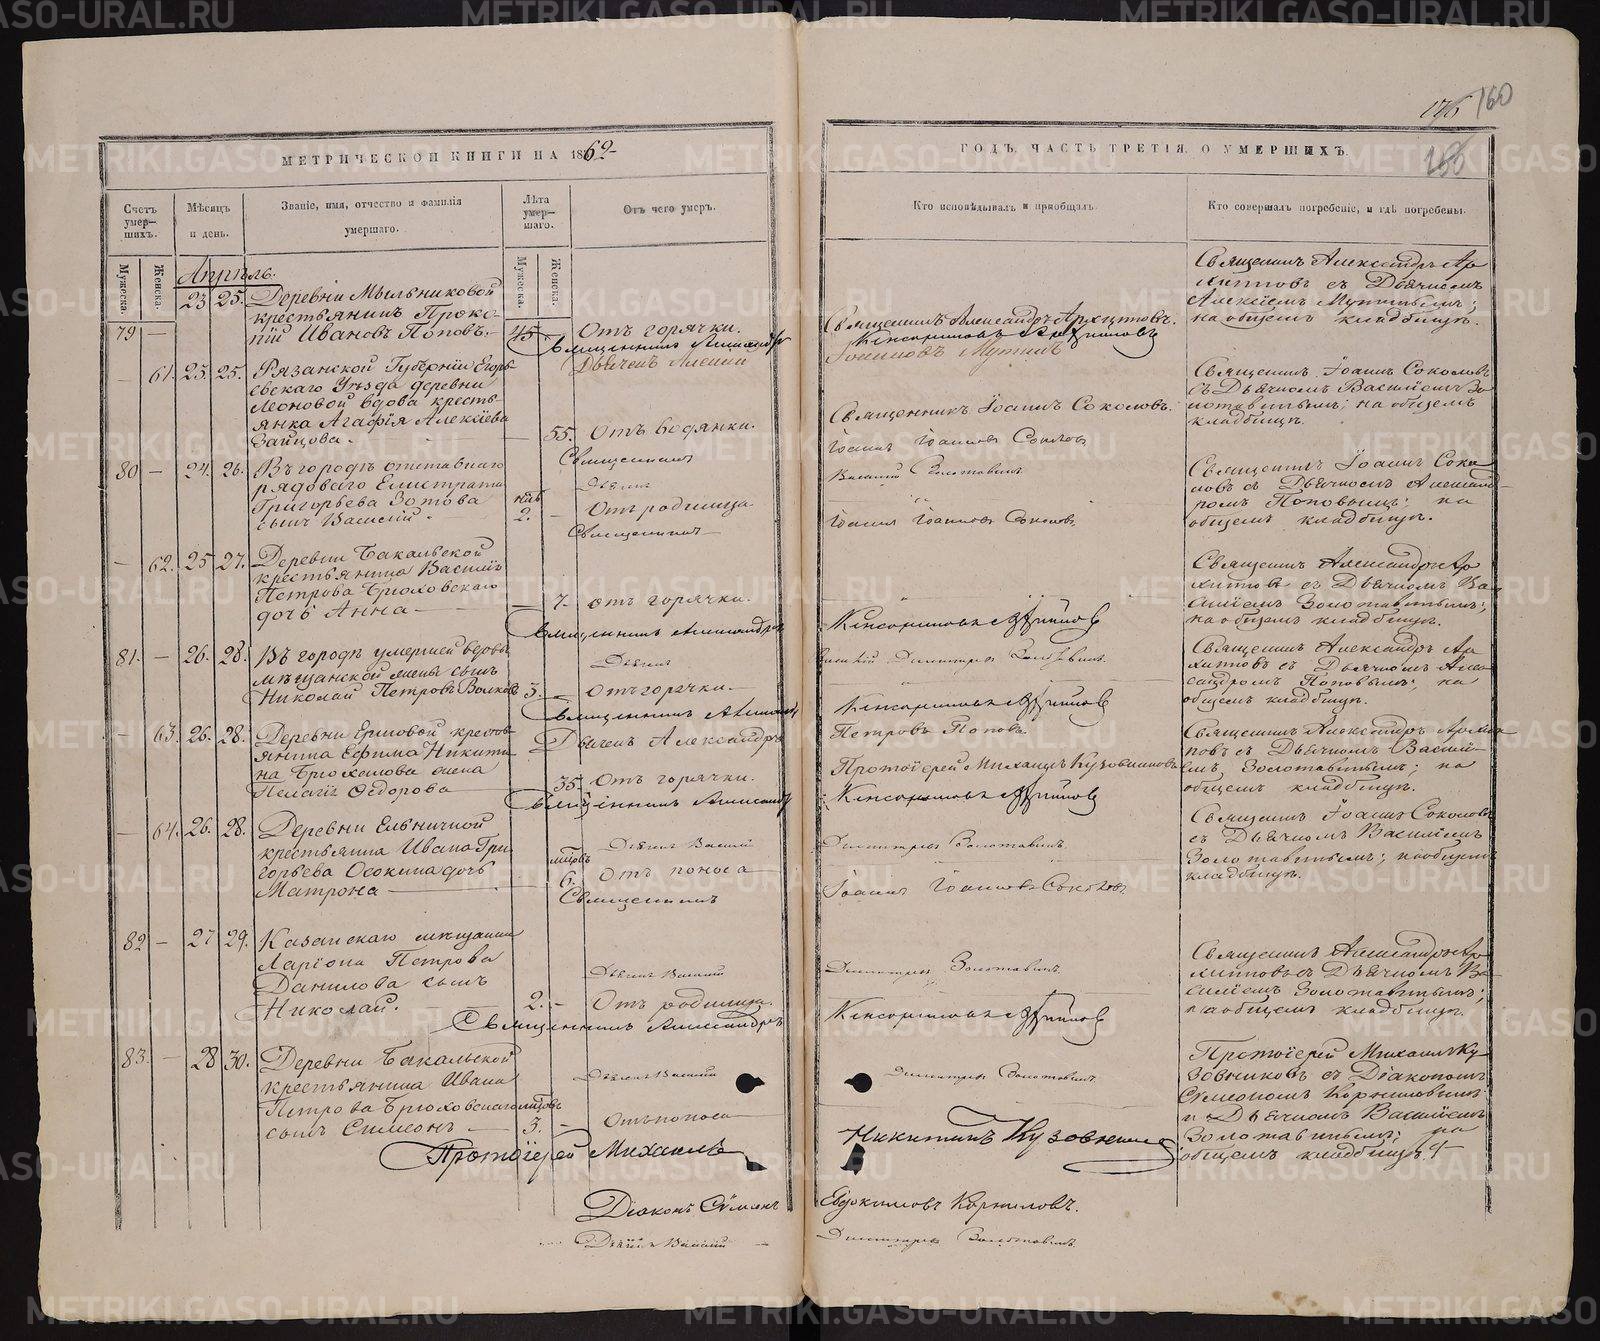 176 160
155
МЕТРИЧЕСКОЙ КНИГИ НА 1869
ГОДЪ. ЧАСТЬ ТРЕТІЯ. О УМЕРШИХЪ.
Счетъ умер-шихъ.
Мѣсяцъ и день.
Званіе, имя, отчество и фамилія умершаго.
Лѣта умер-шаго.
Отъ чего умеръ.
Кто исповѣдывалъ и пріобщалъ.
Кто совершалъ погребеніе, и гдѣ погребены.
Мужеска.
Женска.
Мужеска.
Женска.
Апрѣль.
79 — 23 25. Деревни Мыльниковой
крестьянинъ Проко-
пій Ивановъ Поповъ. 45 — Отъ горячки.
Священникъ Александръ
Дьячекъ Алексѣй
Священникъ Александръ Архиповъ.
Священникъ Александръ Ар
хиповъ съ Дьячкомъ
Алексѣемъ
на общемъ кладбищѣ.
— 61. 23. 25. Рязанской Губерніи Егорь
евскаго Уѣзда деревни
Леоновой вдова кресть-
янка Агафія Алексѣева
Зайцова. — 55. Отъ водянки.
Священникъ
Дьячекъ
Священникъ Іоаннъ Соколовъ.
Іоаннъ Іоанновъ Соколовъ
Василій Золотавинъ
Священникъ Іоаннъ Соколовъ
съ Дьячкомъ Василіемъ Зо
лотавинымъ; на общемъ
кладбищѣ.
80 — 24. 26. Въ городѣ отставнаго
рядоваго Елистрата
Григорьева Зотова
сынъ Василій. 2. — Отъ родимца
Священникъ
Іоаннъ Іоанновъ Соколовъ
Священникъ Іоаннъ Соко
ловъ съ Дьячкомъ Александ-
ромъ Поповымъ; на
общемъ кладбищѣ.
— 62. 25 27. Деревни Бакальской
крестьянина Василія
Петрова Брюховскаго
дочь Анна — 7. отъ горячки.
Священникъ Александръ
Дьячекъ
Василій Димитріевъ Золотавинъ.
Священникъ Александръ Ар
хиповъ съ Дьячкомъ Ва
силіемъ Золотавинымъ;
на общемъ кладбищѣ.
81. — 26. 28. Въ городѣ умершей вдовы
мѣщанской жены сынъ
Николай Петровъ Волковъ 3. — Отъ горячки.
Священникъ Александръ
Дьячекъ Александръ
Петровъ Поповъ
Священникъ Александръ Ар
хиповъ съ Дьячкомъ Алек
сандромъ Поповымъ; на
общемъ кладбищѣ.
— 63. 26. 28. Деревни Ершовой кресть
янина Ефима Никити
на Брюханова жена
Пелагія Ѳедорова — 35. Отъ горячки.
Священникъ Александръ
Дьячекъ Василій
Протоіерей Михаилъ Кузовниковъ
Димитріевъ Золотавинъ.
Священникъ Александръ Архи
повъ съ Дьячкомъ Василі
емъ Золотавинымъ; на
общемъ кладбищѣ.
— 64. 26. 28. Деревни Ельничной
крестьянина Ивана Гри
горьева Осокина дочь
Матрона — 6. Отъ поноса
Священникъ
Дьячекъ Василій
Іоаннъ Іоанновъ Соколовъ
Димитріевъ Золотавинъ.
Священникъ Іоаннъ Соколовъ
съ Дьячкомъ Василіемъ
Золотавинымъ; на общемъ
кладбищѣ.
82 — 27 29. Казанскаго мѣщанина
Ларіона Петрова
Данилова сынъ
Николай. 2. — Отъ родимца.
Священникъ Александръ
Дьячекъ Василій
Димитріевъ Золотавинъ.
Священникъ Александръ Ар
хиповъ съ Дьячкомъ Ва
силіемъ Золотавинымъ;
на общемъ кладбищѣ.
83. — 28 30. Деревни Бакальской
крестьянина Ивана
Петрова Брюховскаго
сынъ Симеонъ — 3. — Отъ поноса
Протоіерей Михаилъ
Никитинъ Кузовниковъ
Протоіерей Михаилъ Ку
зовниковъ съ Діакономъ
Симеономъ Корниловымъ
и Дьячкомъ Василіемъ
Золотавинымъ; на
общемъ кладбищѣ.
Діаконъ Симеонъ Евдокимовъ Корниловъ.
Дьячекъ Василій Димитріевъ Золотавинъ.
METRIKI.GASO-URAL.RU